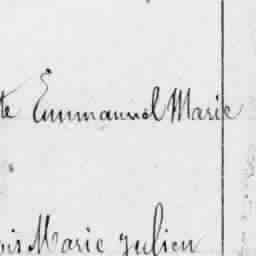 te Emmanuel Marie
ois Marie julien